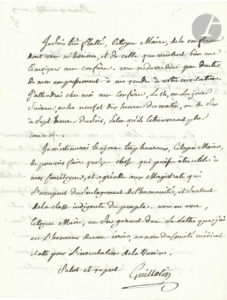 Je suis très flatté, Citoyen Maire, de la confiance
dont vous m'honorez, et de celle que veulent bien me
témoigner mes confrères. vous ne devez pas douter
de mon empressement à me rendre à votre invitation.
J'attendrai chez moi mes confrères, le
suivant, entre neuf et dix heures du matin, ou le soir
à sept heures selon qu'ils le trouveront plus
Je m'estimerai toujours très heureux, Citoyen Maire,
de pouvoir faire quelque chose qui puisse être utile à
mes concitoyens, et agréable aux Magistrats qui
s'occupent du soulagement de l'humanité, et surtout
de la classe indigente du peuple. vous en avez,
Citoyen Maire, un sûr garant dans la lettre que j'ai
eu l'honneur de vous écrire au nom du Comité médical
établi pour l'inoculation de la Vaccine.
Salut et respect
Guillotin